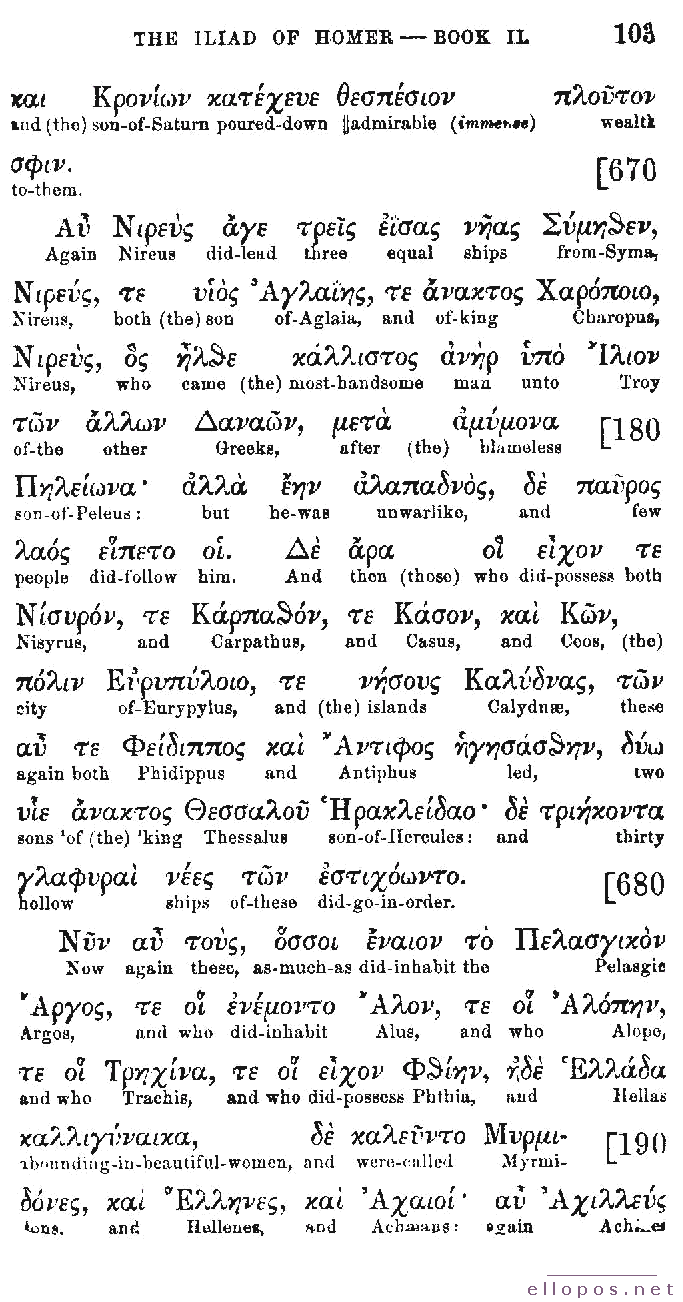 THE ILIAD OF HOMER — BOOK II. 103
και Κρονίων κατέχευε θεσπέσιον πλοῦτον
and (the) son-of-Saturn poured-down ‖admirable (immense) wealth
σφιν. [670
to-them.
Αὖ Νιρεὺς ἄγε τρεῖς ἐΐσας νῆας Σύμηϑεν,
Again Nireus did-lead three equal ships from-Syma,
Νιρεύς, τε υἱὸς Ἀγλαΐης, τε ἄνακτος Χαρόποιο,
Nireus, both (the) son of-Aglaia, and of-king Charopus,
Νιρεὺς, ὃς ἦλϑε κάλλιστος ἀνὴρ ὑπὸ Ἴλιον
Nireus, who came (the) most-handsome man unto Troy
τῶν ἄλλων Δαναῶν, μετὰ ἀμύμονα [180
of-the other Greeks, after (the) blameless
Πηλείωνα· ἀλλὰ ἔην ἀλαπαδνὸς, δὲ παῦρος
son-of-Peleus: but he-was unwarlike, and few
λαός εἵπετο οἱ. Δὲ ἄρα οἳ εἶχον τε
people did-follow him. And then (those) who did-possess both
Νίσυρόν, τε Κάρπαϑόν, τε Κάσον, καὶ Κῶν,
Nisyrus, and Carpathus, and Casus, and Coos, (the)
πόλιν Εὐρυπύλοιο, τε νήσους Καλύδνας, τῶν
city of-Eurypylus, and (the) islands Calydnæ, these
αὖ τε Φείδιππος καὶ Ἄντιφος ἡγησάσϑην, δύω
again both Phidippus and Antiphus led, two
υἷε ἄνακτος Θεσσαλοῦ Ἡρακλείδαο· δὲ τριήκοντα
sons ¹of (the) ¹king Thessalus son-of-Hercules: and thirty
γλαφυραὶ νέες τῶν ἐστιχόωντο. [680
hollow ships of-these did-go-in-order.
Νῦν αὖ τοὺς, ὅσσοι ἔναιον τὸ Πελασγικὸν
Now again these, as-much-as did-inhabit the Pelasgic
Ἄργος, τε οἳ ἐνέμοντο Ἄλον, τε οἳ Ἀλόπην,
Argos, and who did-inhabit Alus, and who Alope,
τε οἳ Τρηχίνα, τε οἳ εἶχον Φϑίην, ἠδὲ Ἑλλάδα
and who Trachis, and who did-possess Phthia, and Hellas
καλλιγύναικα, δὲ καλεῦντο Μυρμι- [190
abounding-in-beautiful-women, and were-called Myrmi-
δόνες, καὶ Ἕλληνες, καὶ Ἀχαιοί· αὖ Ἀχιλλεύς
dons, and Hellenes, and Achæans: again Achilles
ellopos.net